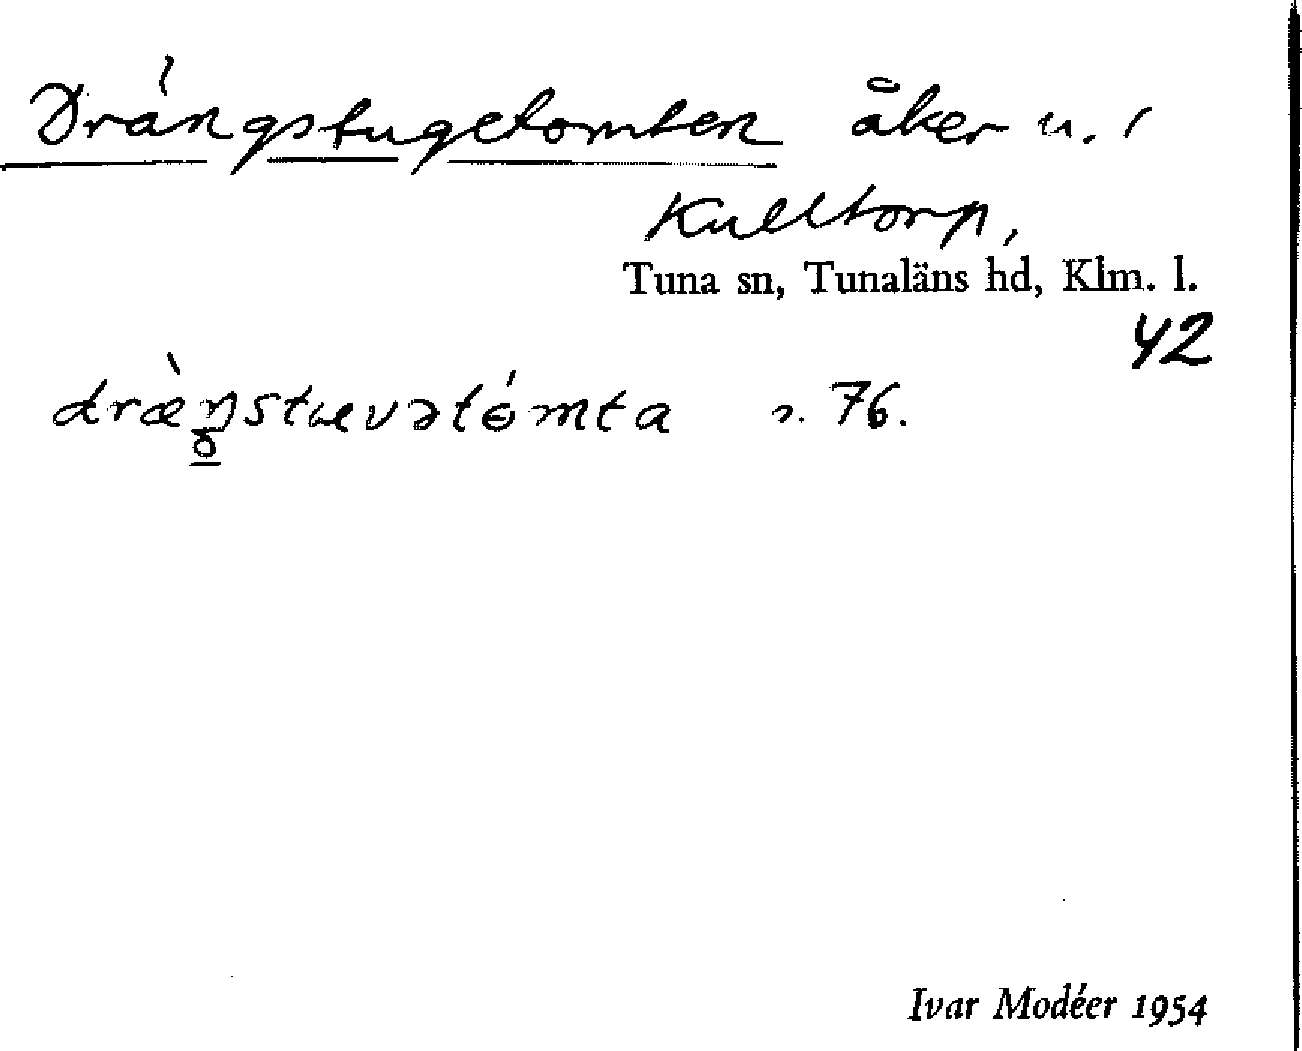 Drängstugetomten åker u. 1
Kulltorp,
Tuna sn, Tunaläns hd, Klm. l.
42
76.
Ivar Modéer 1954